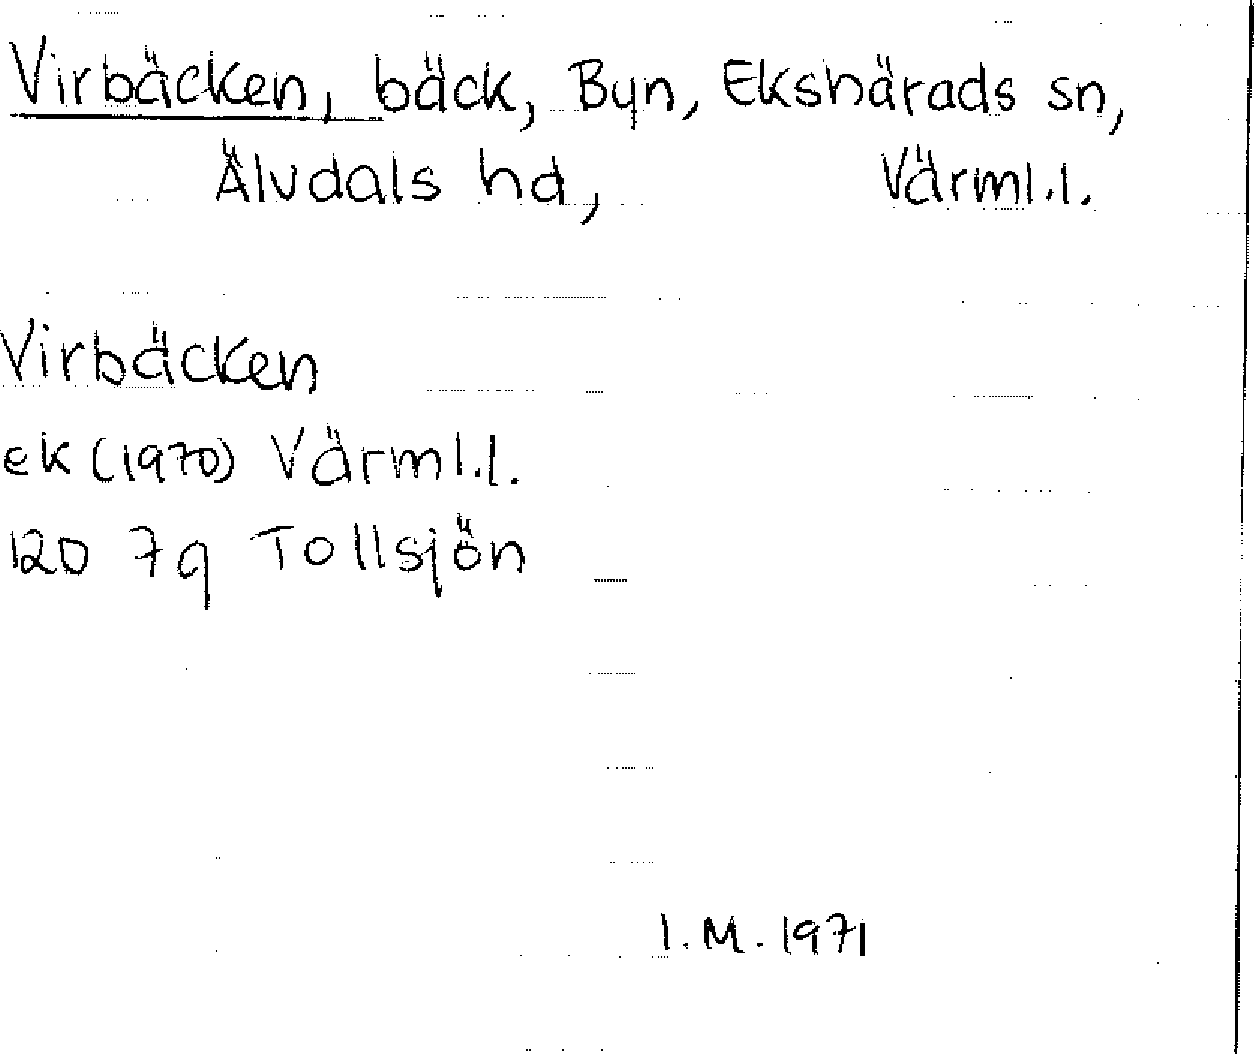 Virbäcken, bäck, Byn, Ekshärads sn,
Älvdals hd, Värml.l.
Virbäcken
ek (1970) Värml.l.
120 7q Tollsjön
I.M. 1971